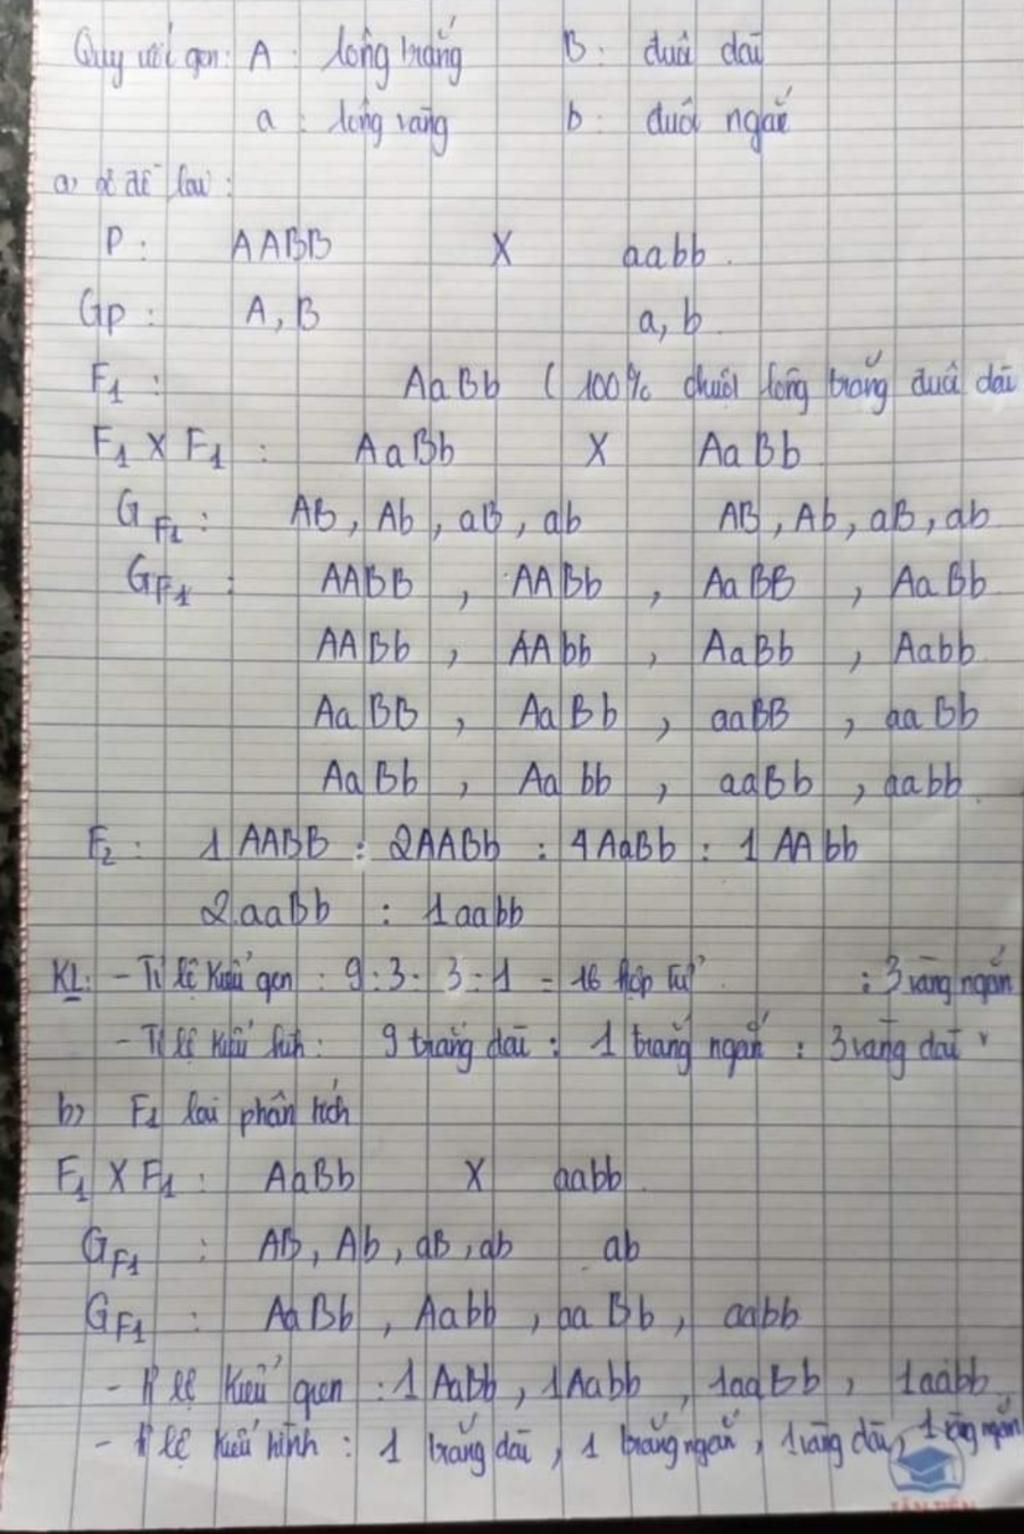 Quy ước gen: A : lông trắng B: đuôi dài
a : lông vàng b: đuôi ngắn
a) sơ đồ lai:
P: AABB X aabb.
GP: A, B a, b
F1: AaBb ( 100% chuột lông trắng đuôi dài
F1 X F1 : AaBb X AaBb
G F1 : AB, Ab, aB, ab AB, Ab, aB, ab
GF1 : AABB , AABb , AaBB , AaBb
AABb , AAbb , AaBb , Aabb
AaBB , AaBb , aaBB , aaBb
AaBb , Aabb , aaBb , aabb.
F2: 1AABB : 2AABb : 4AaBb : 1 AAbb
2.aaBb : 1aabb
KL: - Tỉ lệ kiểu gen : 9:3:3:1 = 16 hợp tử : 3 vàng ngắn
- Tỉ lệ kiểu hình: 9 trắng dài : 1 trắng ngắn : 3 vàng dài
b) F1 lai phân tích
F1 X F1 : AaBb X aabb.
GF1 : AB, Ab, aB, ab ab
GF1 : AaBb , Aabb , aaBb , aabb
- tỉ lệ kiểu gen : 1 AaBb, 1Aabb , 1aaBb , 1aabb
- tỉ lệ kiểu hình : 1 trắng dài , 1 trắng ngắn , 1 vàng dài, 1 ngắn